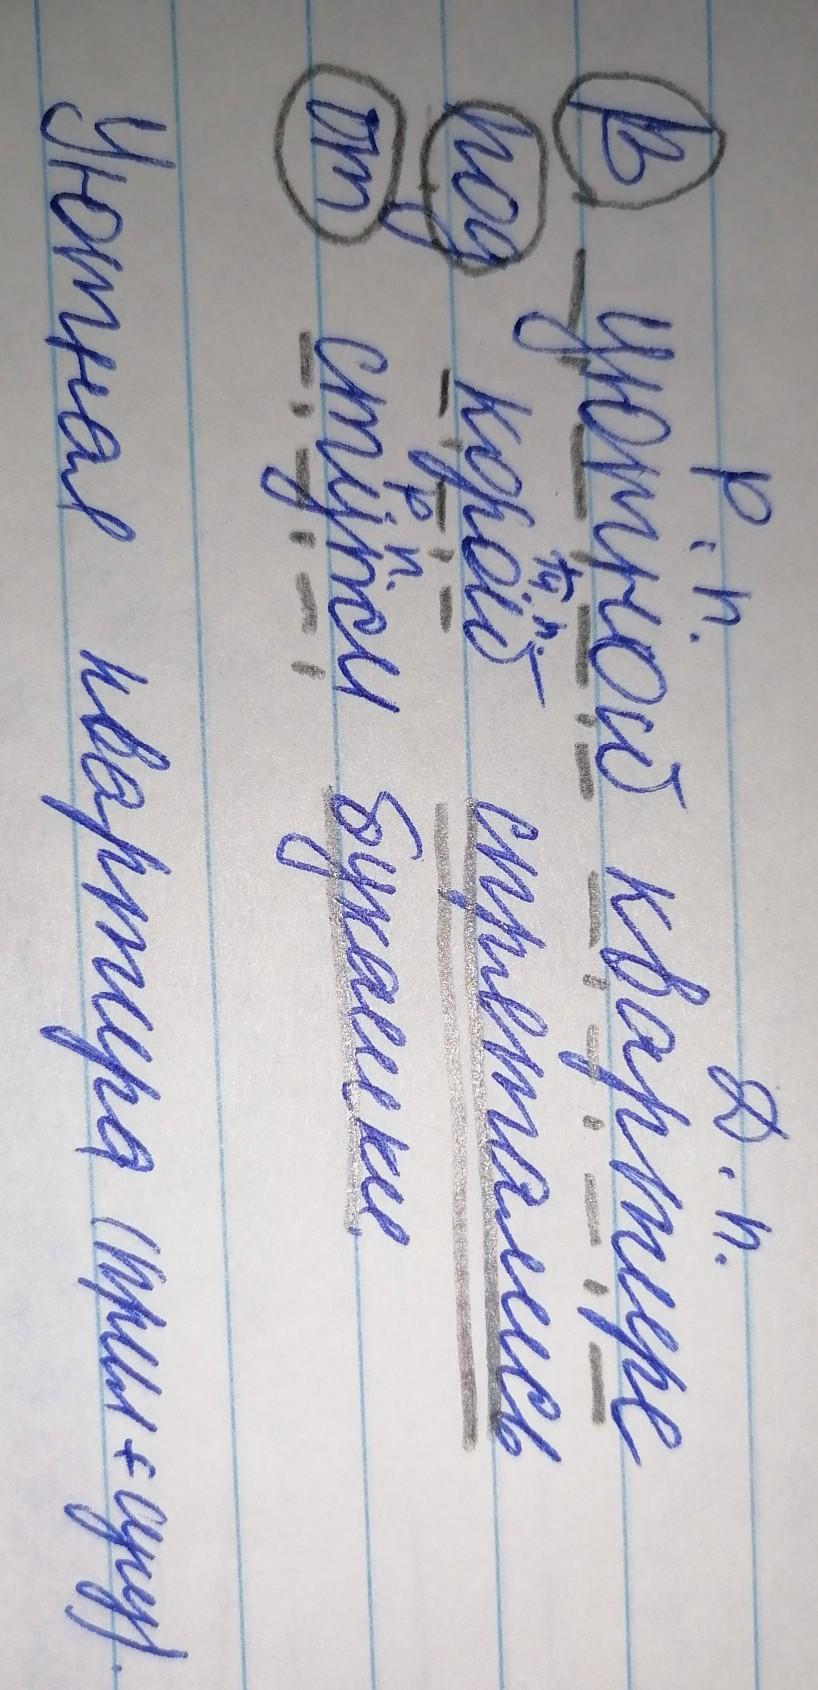 Р.п. Д.п.
В уютной квартире
Тв.п.
под корой спрятались
Р.п.
от стужи букашки
Уютная квартира (прил + сущ).